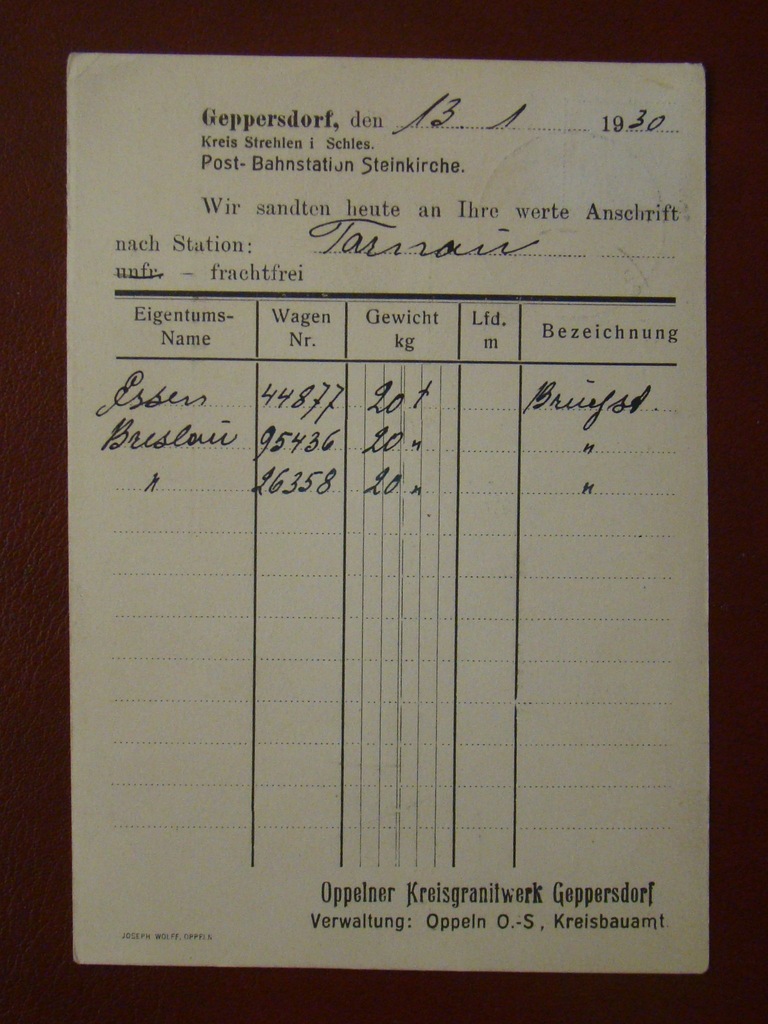 Geppersdorf, den 13. 1 1930
Kreis Strehlen i Schles.
Post-Bahnstation Steinkirche.
Wir sandten heute an Ihre werte Anschrift
nach Station: Tarnau
unfr. – frachtfrei
Eigentums-Name Wagen Nr. Gewicht kg Lfd. m Bezeichnung
Essen 44877 20 t Bruchst.
Breslau 95436 20 " "
" 26358 20 " "
Oppelner Kreisgranitwerk Geppersdorf
Verwaltung: Oppeln O.-S, Kreisbauamt
JOSEPH WOLFF, OPPELN